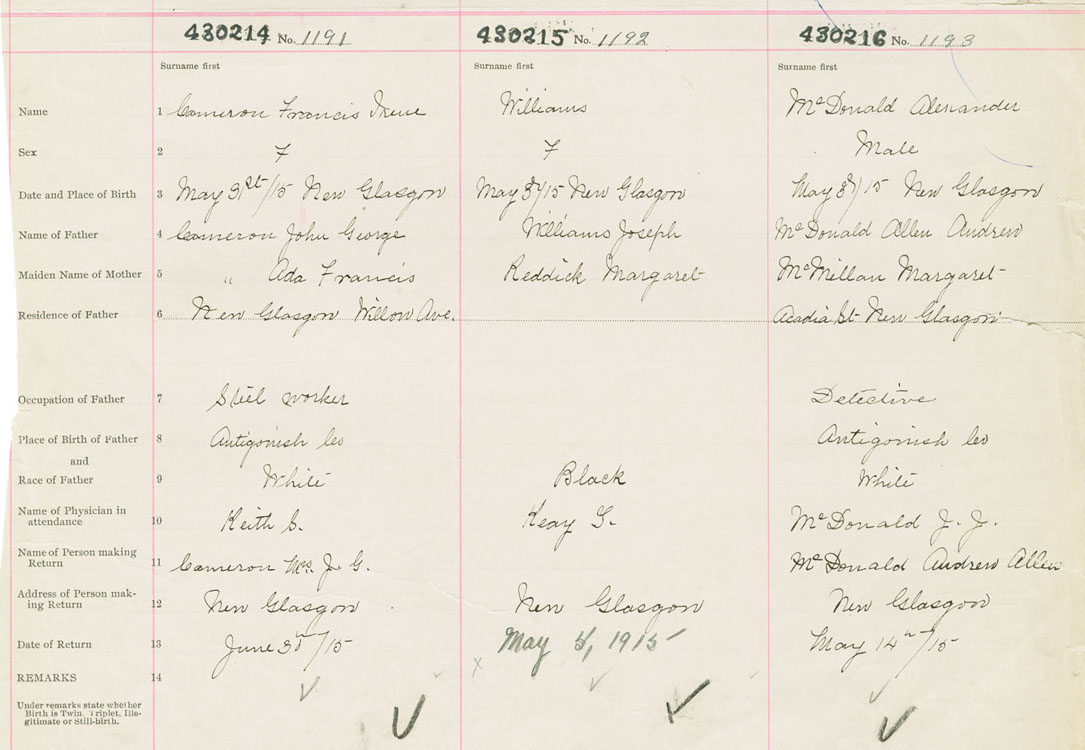 430214 No. 1191 430215 No. 1192 430216 No. 1193
Surname first Surname first Surname first
Name 1 Cameron Francis Irene Williams McDonald Alexander
Sex 2 F F Male
Date and Place of Birth 3 May 31st/15 New Glasgow May 3/15 New Glasgow May 3/15 New Glasgow
Name of Father 4 Cameron John George Williams Joseph McDonald Allen Andrew
Maiden Name of Mother 5 " Ada Francis Reddick Margaret McMillan Margaret
Residence of Father 6 New Glasgow Willow Ave. Acadia St New Glasgow
Occupation of Father 7 Steel worker Detective
Place of Birth of Father 8 Antigonish Co Antigonish Co
and
Race of Father 9 White Black White
Name of Physician in attendance 10 Keith S. Keay G. McDonald J. J.
Name of Person making Return 11 Cameron Mrs. J. G. McDonald Andrew Allen
Address of Person making Return 12 New Glasgow New Glasgow New Glasgow
Date of Return 13 June 30/15 May 5, 1915 May 14th/15
REMARKS 14
Under remarks state whether
Birth is Twin, Triplet, Ille-
gitimate or Still-birth.